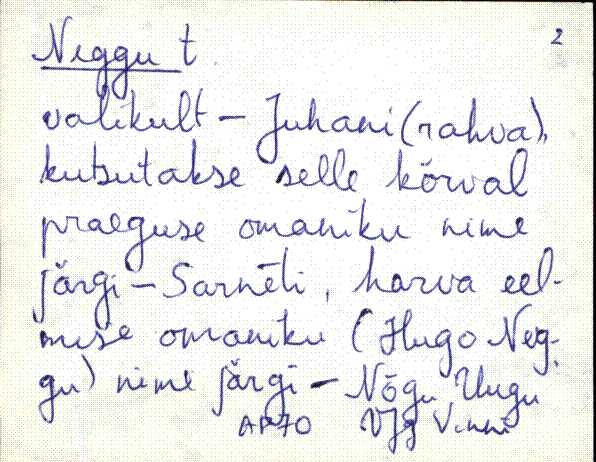 2
Neggu t.
valikult – Juhani (rahva),
kutsutakse selle kõrval
praeguse omaniku nime
järgi – Sarnēti, harva eel-
mise omaniku (Hugo Neg-
gu) nime järgi – Nõgu Ungu
AP70 VJg Vinni